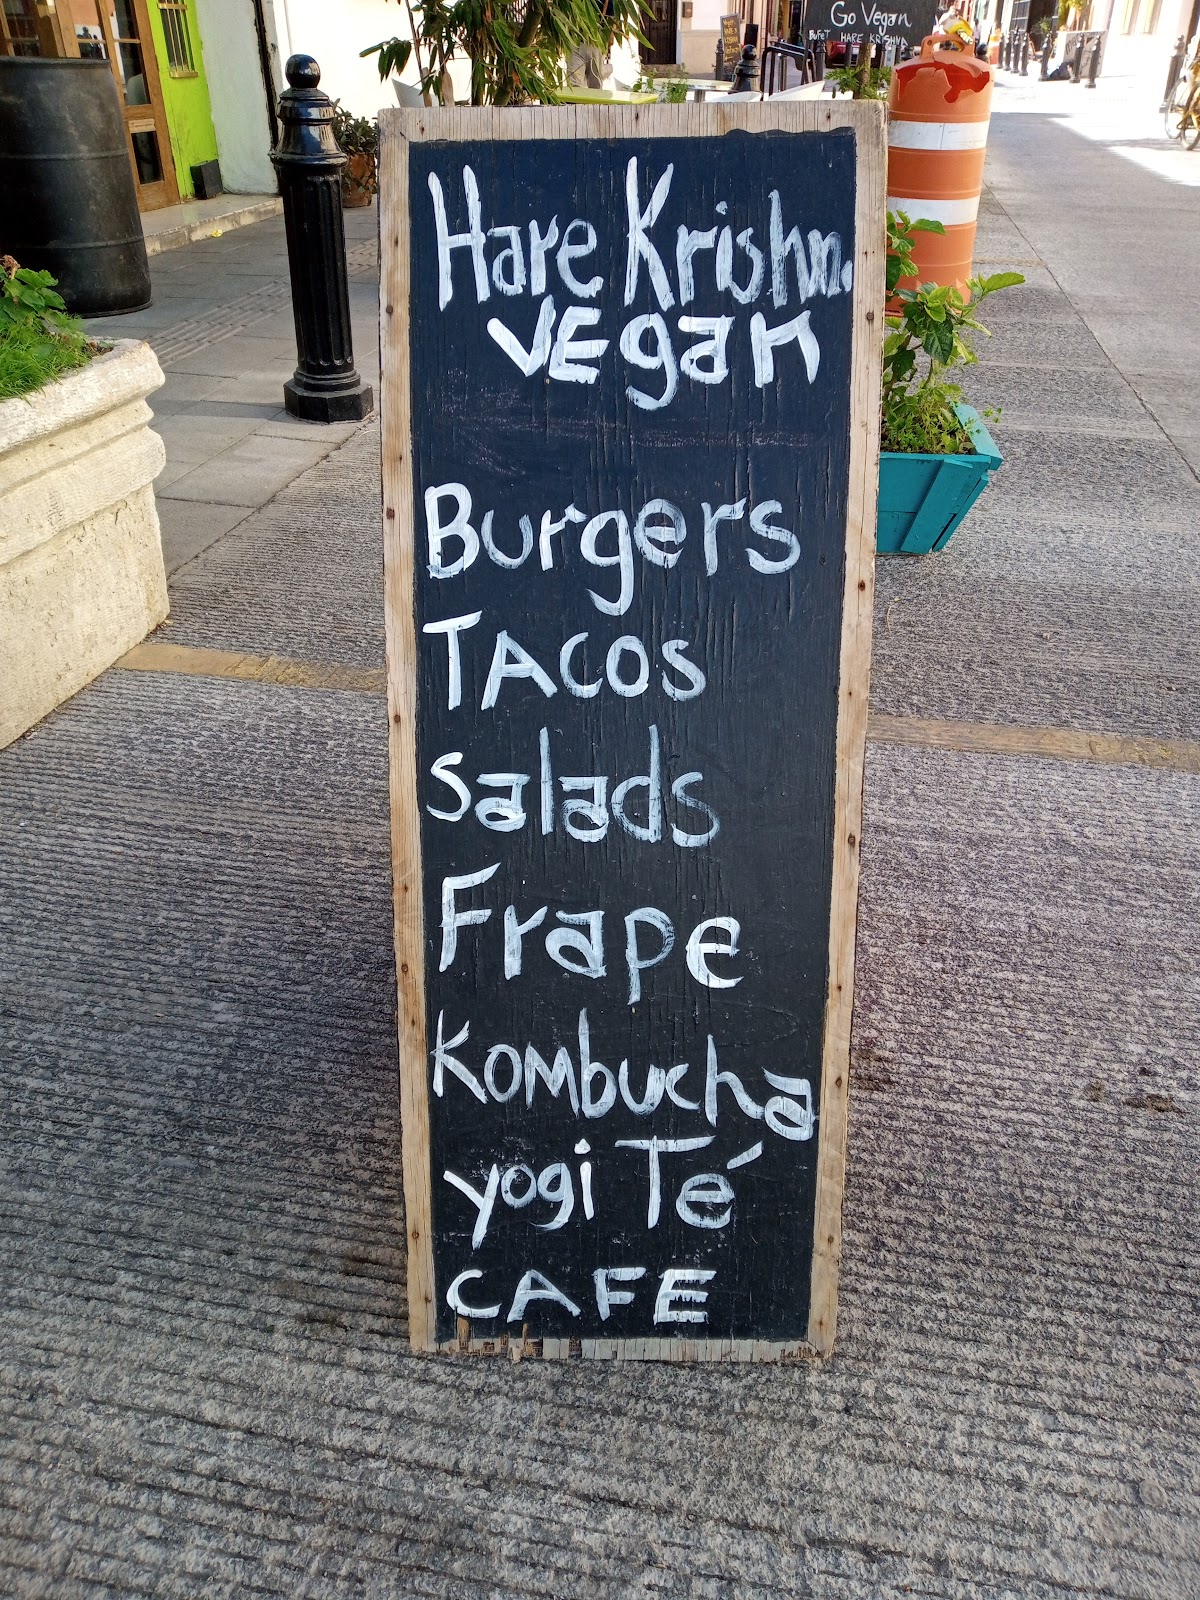 Go Vegan
BufeT HARE KRISHNA
Hare Krishna
VEgan
Burgers
TAcos
salads
Frape
Kombucha
yogi Té
CAFE